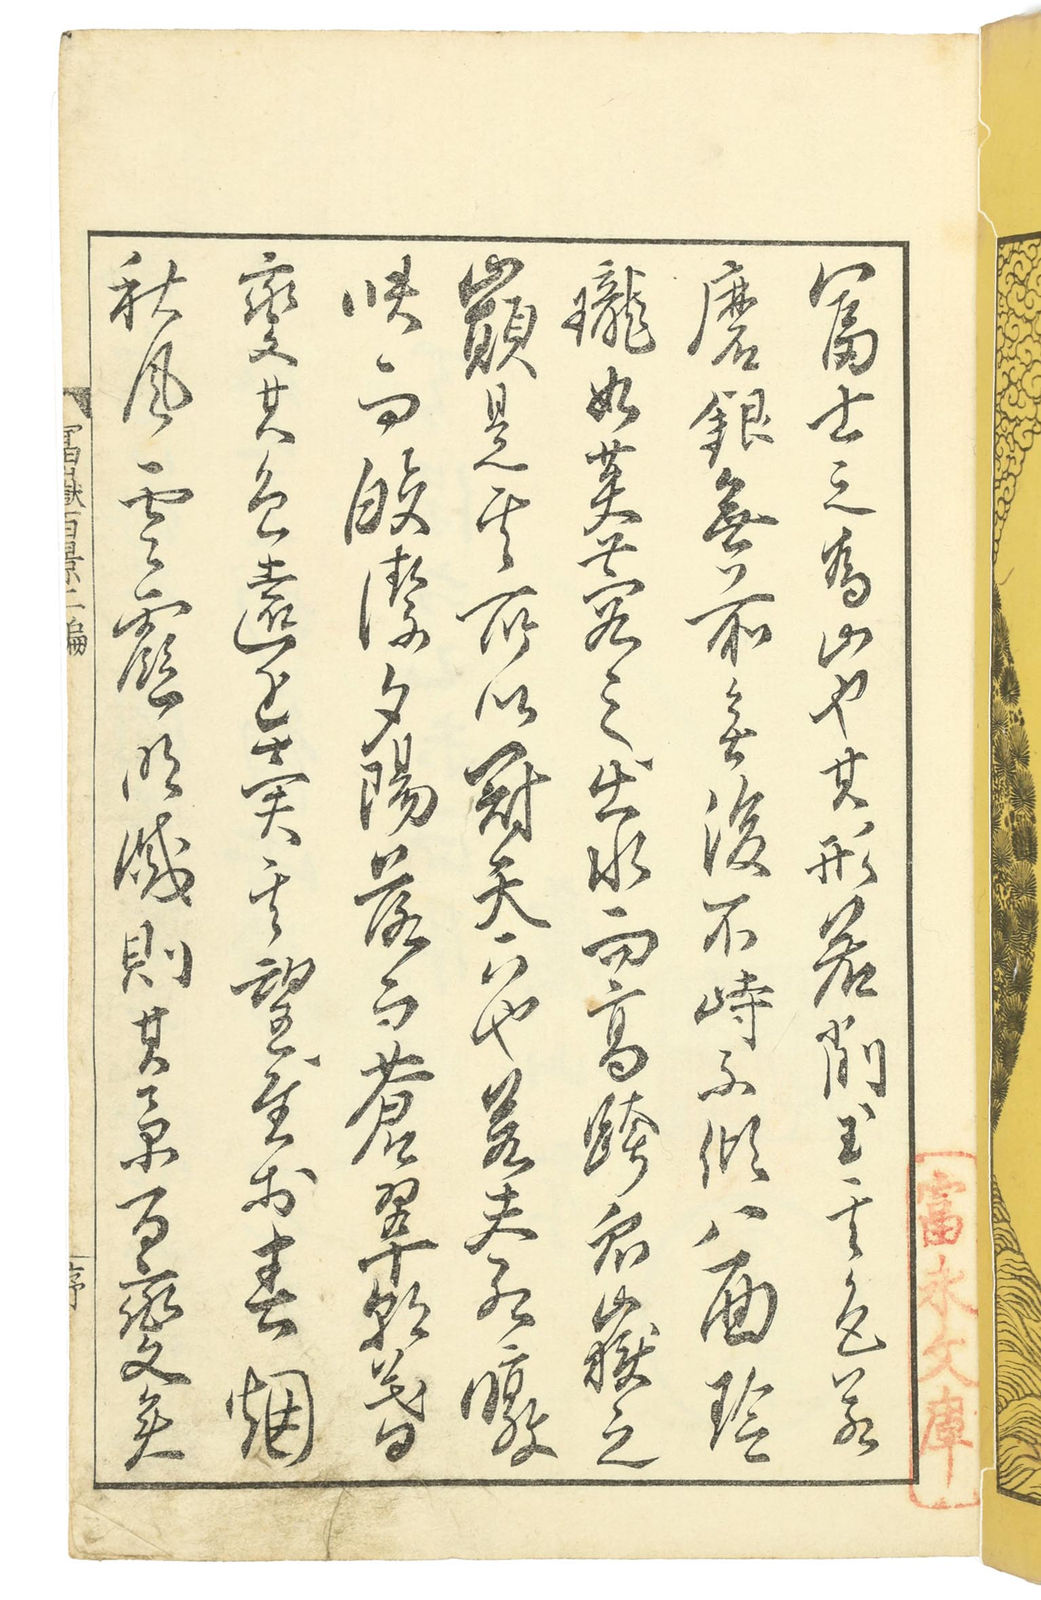 富士之為山也其形若削玉其色若
磨銀無前無後不峙不傾八面玲
瓏如芙蓉之出水而高跨衆山嶽之
巔是其所以冠天下也若夫暾
映而皎潔夕陽落而蒼翠朝暮
變其色遠近異其望至於春烟
秋風雲靄明滅則其景百變矣
富嶽百景二編
序
富水文庫